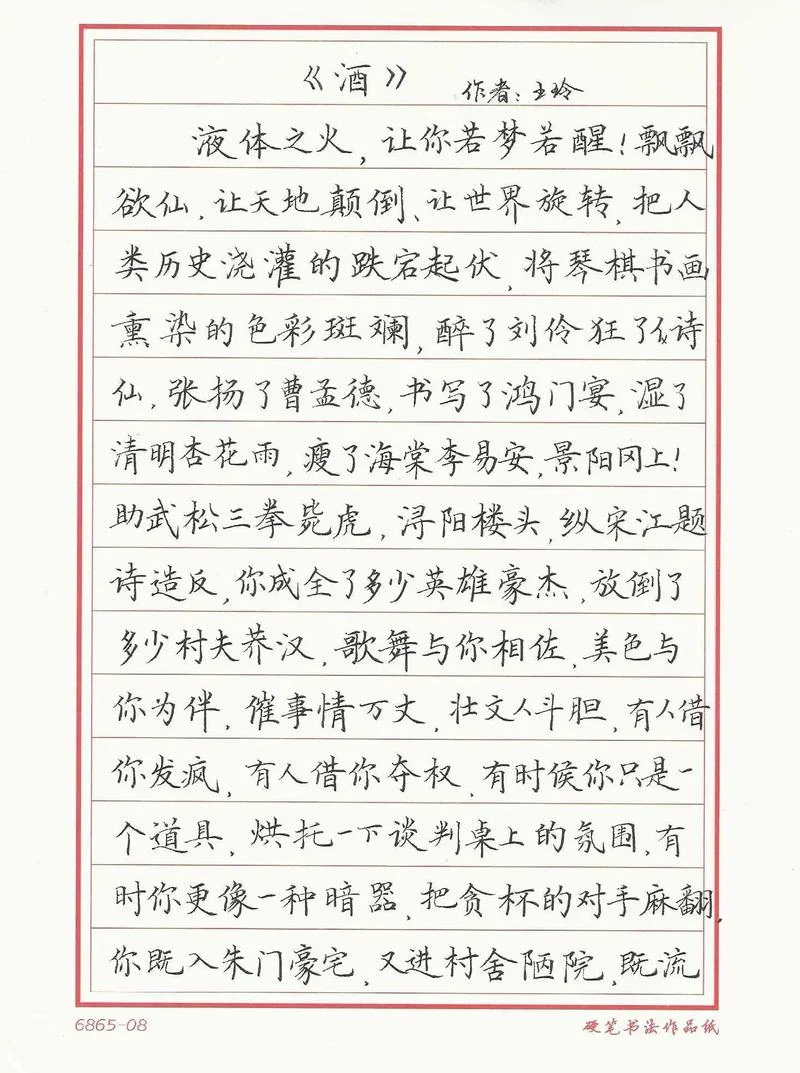 《酒》 作者：王玲
液体之火，让你若梦若醒！飘飘
欲仙，让天地颠倒、让世界旋转，把人
类历史浇灌的跌宕起伏，将琴棋书画
熏染的色彩斑斓，醉了刘伶狂了诗
仙，张扬了曹孟德，书写了鸿门宴，湿了
清明杏花雨，瘦了海棠李易安，景阳冈上！
助武松三拳毙虎，浔阳楼头，纵宋江题
诗造反，你成全了多少英雄豪杰，放倒了
多少村夫莽汉，歌舞与你相佐，美色与
你为伴，催事情万丈，壮文人斗胆，有人借
你发疯，有人借你夺权，有时候你只是一
个道具，烘托一下谈判桌上的氛围，有
时你更像一种暗器，把贪杯的对手麻翻，
你既入朱门豪宅，又进村舍陋院，既流
6865-08 硬笔书法作品纸